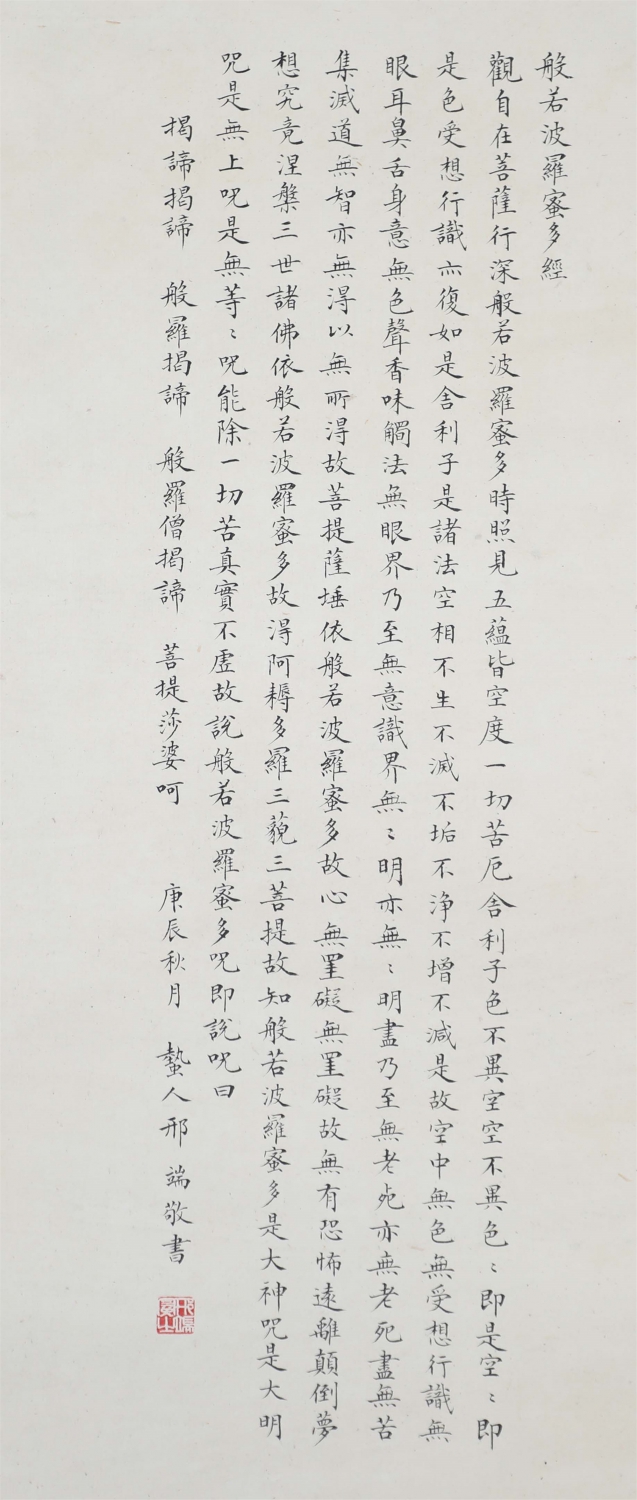 般若波羅蜜多經
觀自在菩薩行深般若波羅蜜多時照見五蘊皆空度一切苦厄舍利子色不異空空不異色〻即是空〻即
是色受想行識亦復如是舍利子是諸法空相不生不滅不垢不淨不增不減是故空中無色無受想行識無
眼耳鼻舌身意無色聲香味觸法無眼界乃至無意識界無〻明亦無〻明盡乃至無老死亦無老死盡無苦
集滅道無智亦無得以無所得故菩提薩埵依般若波羅蜜多故心無罣礙無罣礙故無有恐怖遠離顛倒夢
想究竟涅槃三世諸佛依般若波羅蜜多故得阿耨多羅三藐三菩提故知般若波羅蜜多是大神咒是大明
咒是無上咒是無等〻咒能除一切苦真實不虛故說般若波羅蜜多咒即說咒曰
揭諦揭諦 般羅揭諦 般羅僧揭諦 菩提莎婆呵 庚辰秋月 蟄人邢端敬書